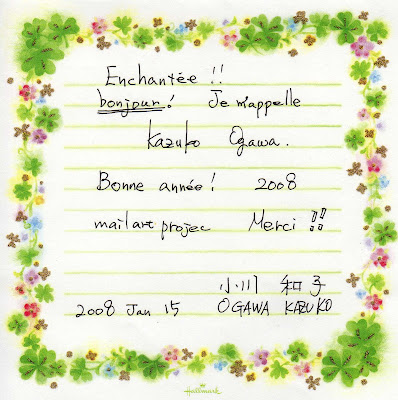 Enchantée !!
bonjour! Je m'appelle
Kazuko Ogawa.
Bonne année! 2008
mailart projec Merci !!
小川 和子
2008 Jan 15 OGAWA KAZUKO
Hallmark